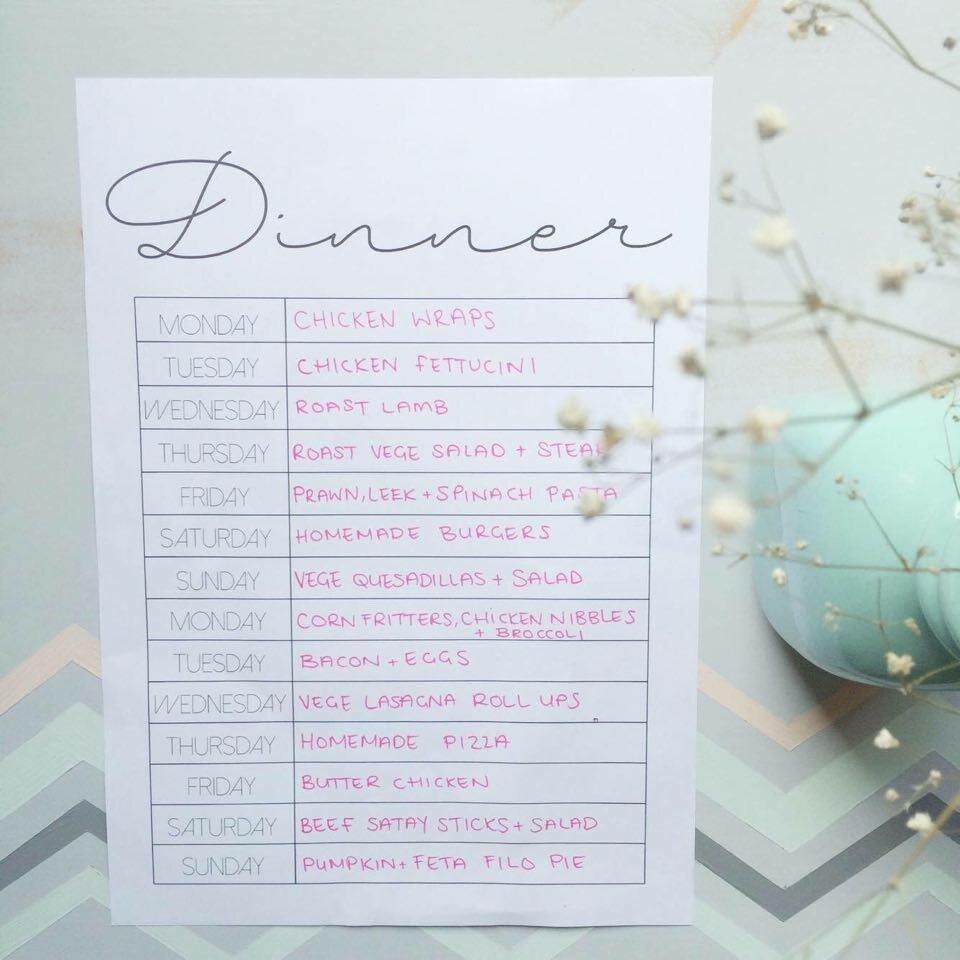 Dinner
MONDAY CHICKEN WRAPS
TUESDAY CHICKEN FETTUCINI
WEDNESDAY ROAST LAMB
THURSDAY ROAST VEGE SALAD + STEAK
FRIDAY PRAWN, LEEK + SPINACH PASTA
SATURDAY HOMEMADE BURGERS
SUNDAY VEGE QUESADILLAS + SALAD
MONDAY CORN FRITTERS, CHICKEN NIBBLES
+ BROCCOLI
TUESDAY BACON + EGGS
WEDNESDAY VEGE LASAGNA ROLL UPS
THURSDAY HOMEMADE PIZZA
FRIDAY BUTTER CHICKEN
SATURDAY BEEF SATAY STICKS + SALAD
SUNDAY PUMPKIN + FETA FILO PIE